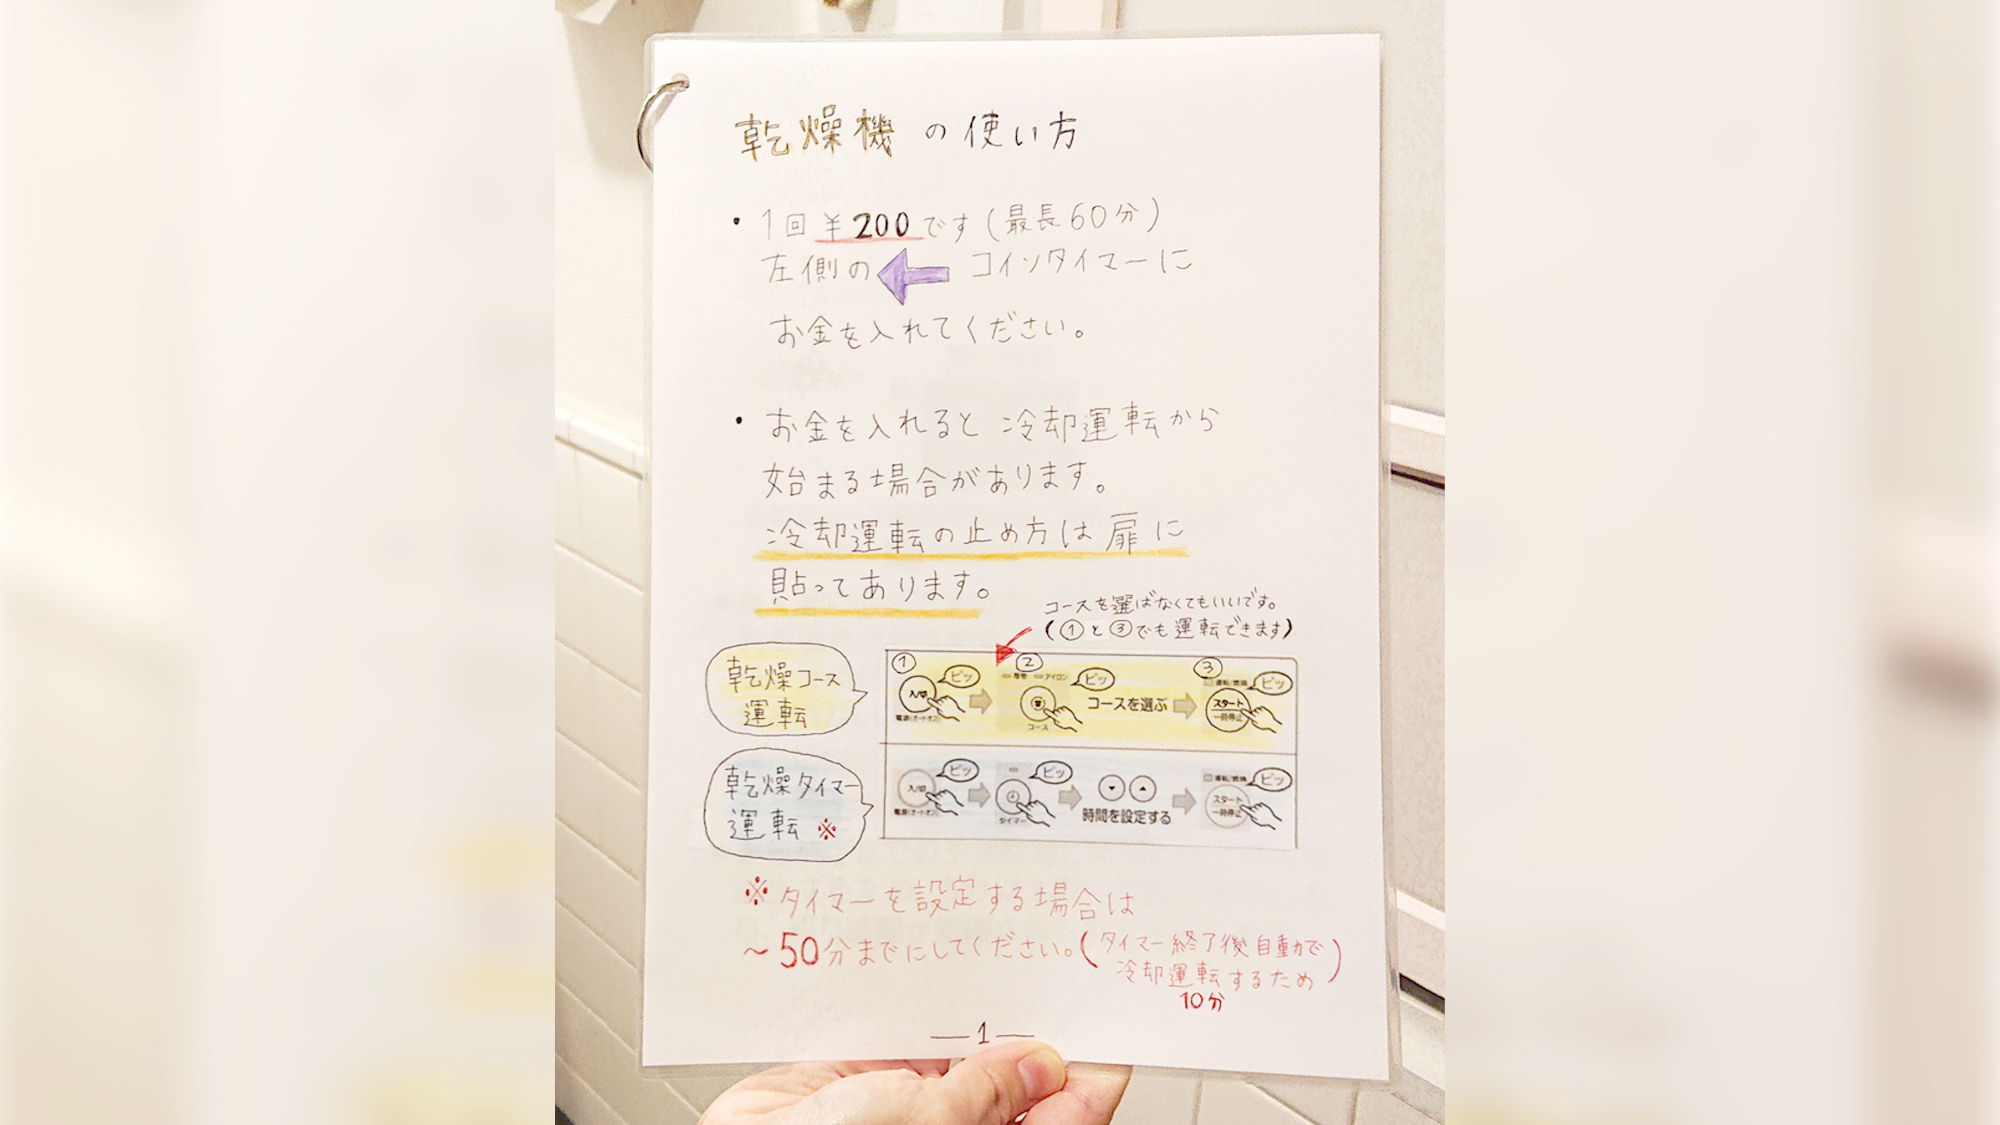 乾燥機の使い方
・1回¥200です(最長60分)
左側の コインタイマーに
お金を入れてください。
・お金を入れると冷却運転から
始まる場合があります。
冷却運転の止め方は扉に
貼ってあります。
コースを選ばなくてもいいです。
(①と③でも運転できます)
乾燥コース
運転
① ピッ
入/切
電源(オートオフ)
② ピッ
専帯 アイロン
コース
コースを選ぶ
③ ピッ
運転/燃焼
スタート
一時停止
乾燥タイマー
運転※
ピッ
入/切
電源(オートオフ)
ピッ
タイマー
時間を設定する
ピッ
運転/燃焼
スタート
一時停止
※タイマーを設定する場合は
～50分までにしてください。(タイマー終了後自動で
冷却運転するため)
10分
—1—